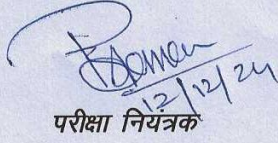 12/12/24
परीक्षा नियंत्रक